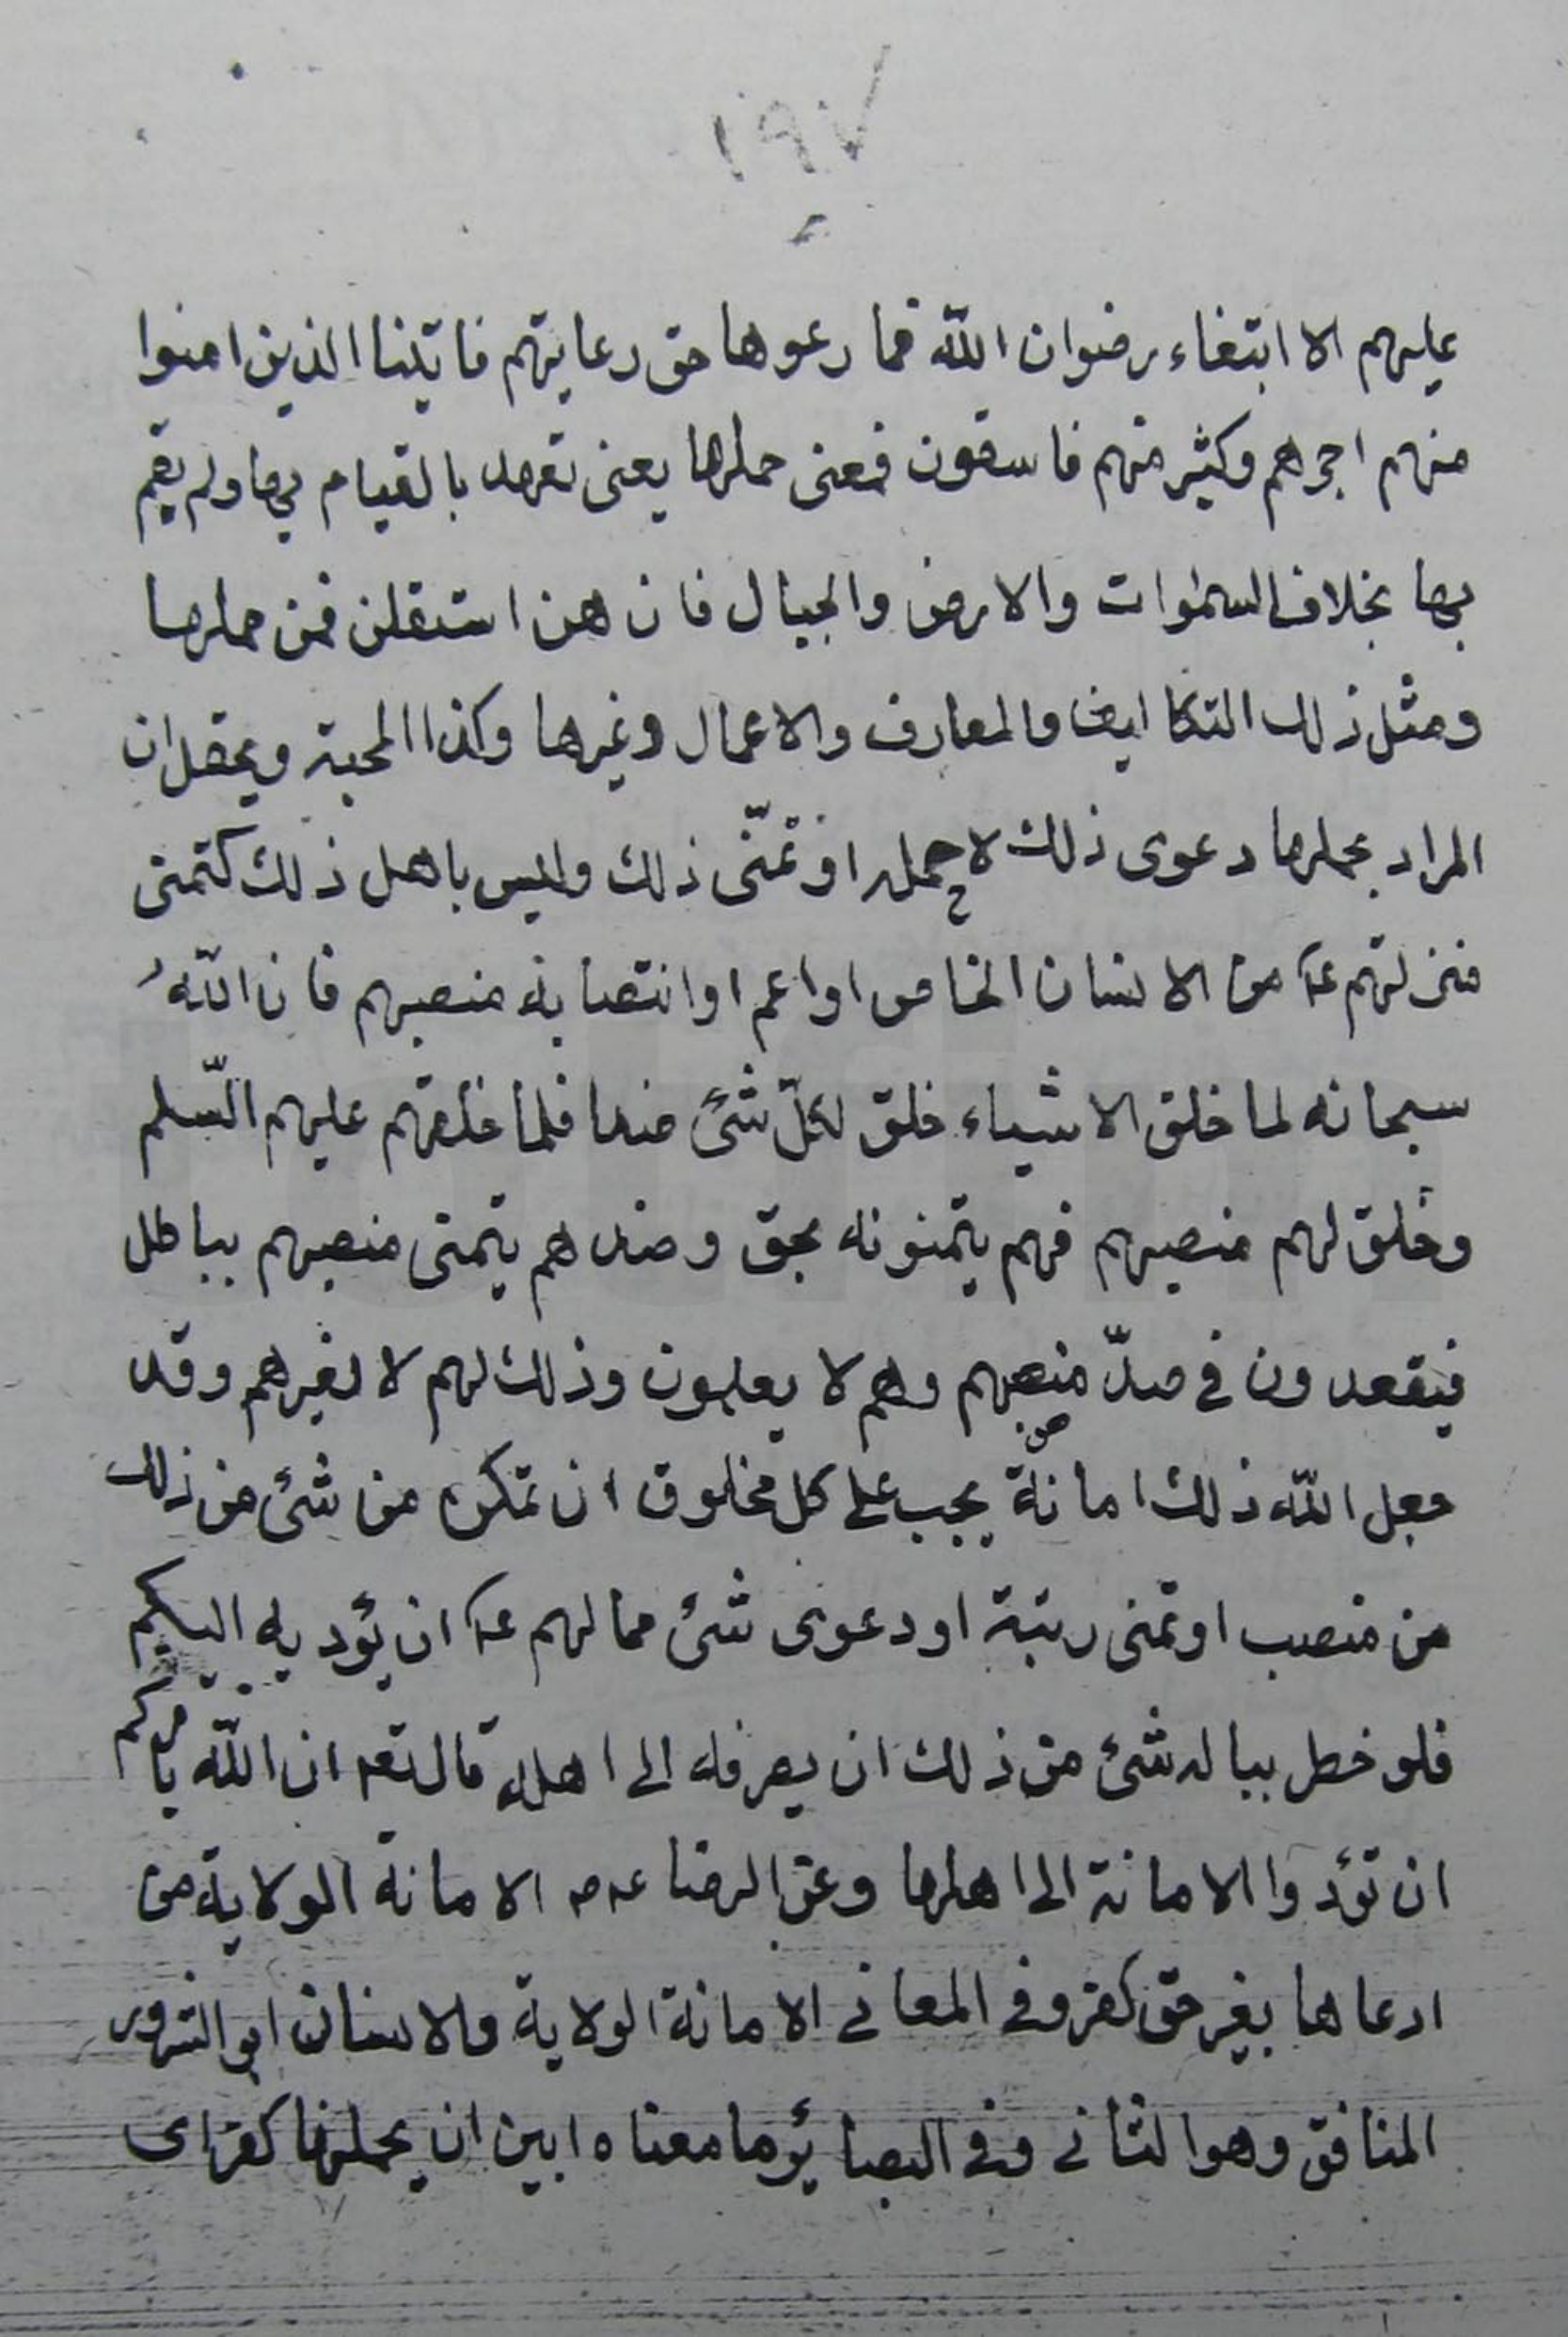 ١٩٧
عليهم الا ابتغاء رضوان الله فما رعوها حق رعايتهم فاتينا الذين امنوا
منهم اجرهم وكثير منهم فاسقون فمعنى حملها يعنى تعهد بالقيام بها ولم يقم
بها بخلاف السموات والارض والجبال فان هن استقلن فمن حملها
ومثل ذلك التكاليف والمعارف والاعمال وغيرها وكذا المحبة ويحتمل ان
المراد بحملها دعوى ذلك لا حمله او تمنّى ذلك وليس باهل ذلك كتمنى
منزلتهم ع من الانسان الخاص او اعم او انتصابه منصبهم فان الله
سبحانه لما خلق الاشياء خلق لكلّ شئ ضدا فلما خلقهم عليهم السّلم
وخلق لهم منصبهم فهم يتمنونه بحق وضدهم يتمنى منصبهم بباطل
فيقعدون فى صدّ منصبهم وهم لا يعلمون وذلك لهم لا لغيرهم وقد
جعل الله ذلك امانة يجب على كل مخلوق ان تمكن من شئ من ذلك
من منصب او تمنى رتبة او دعوى شئ مما لهم ع ان يؤديه اليهم
فلو خطر بباله شئ من ذلك ان يصرفه الى اهله قال تعه ان الله يامركم
ان تؤدوا الامانة الى اهلها وعن الرضا ع الامانة الولاية من
ادعاها بغير حق كفر وفى المعانى الامانة الولاية والانسان ابو الشرور
المنافق وهو الثانى وفى البصائر ما معناه ابين ان يحملنها كفرا